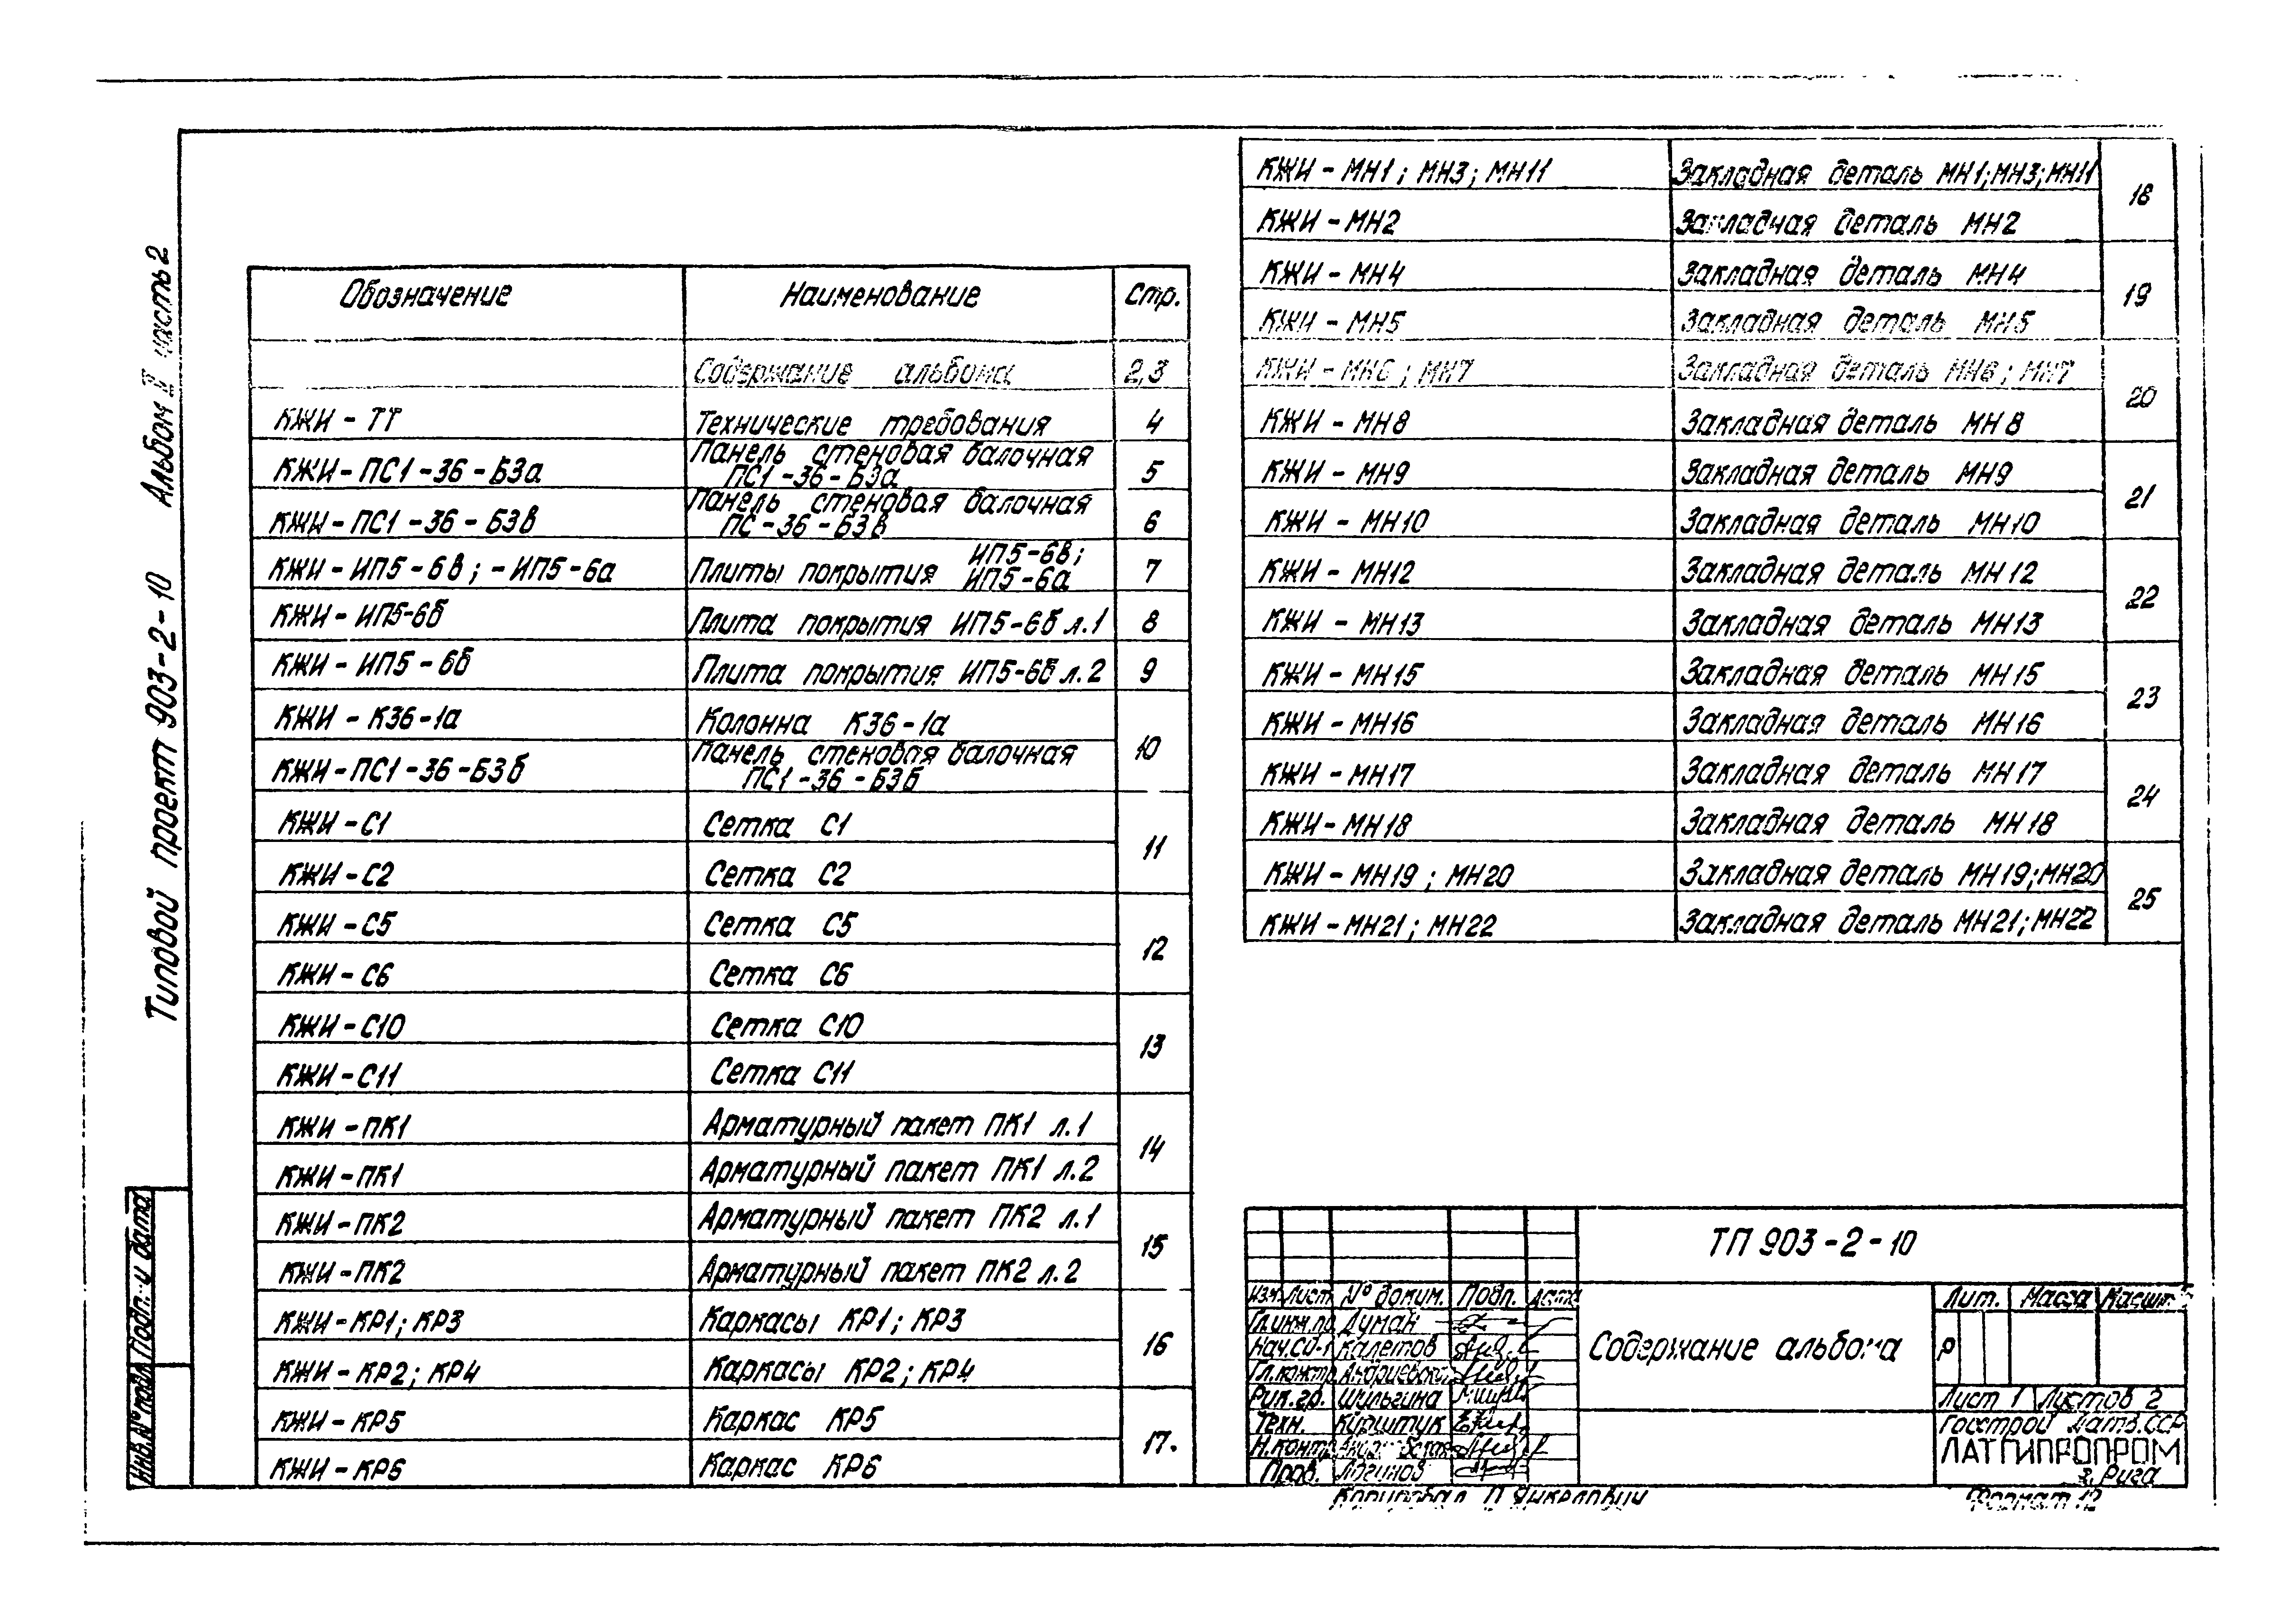 Типовой проект 903-2-10 Альбом II часть 2
Инв.№подл. Подп. и дата
Обозначение Наименование Стр.
Содержание альбома 2,3
КЖИ-ТТ Технические требования 4
Панель стеновая балочная
КЖИ-ПС1-36-Б3а ПС1-36-Б3а 5
Панель стеновая балочная
КЖИ-ПС1-36-Б3в ПС-36-Б3в 6
ИП5-6в;
КЖИ-ИП5-6в; -ИП5-6а Плиты покрытия ИП5-6а 7
КЖИ-ИП5-6б Плита покрытия ИП5-6б л.1 8
КЖИ-ИП5-6б Плита покрытия ИП5-6б л.2 9
КЖИ-К36-1а Колонна К36-1а
10
Панель стеновая балочная
КЖИ-ПС1-36-Б3б ПС1-36-Б3б
КЖИ-С1 Сетка С1
11
КЖИ-С2 Сетка С2
КЖИ-С5 Сетка С5
12
КЖИ-С6 Сетка С6
КЖИ-С10 Сетка С10
13
КЖИ-С11 Сетка С11
КЖИ-ПК1 Арматурный пакет ПК1 л.1
14
КЖИ-ПК1 Арматурный пакет ПК1 л.2
КЖИ-ПК2 Арматурный пакет ПК2 л.1
15
КЖИ-ПК2 Арматурный пакет ПК2 л.2
КЖИ-КР1; КР3 Каркасы КР1; КР3
16
КЖИ-КР2; КР4 Каркасы КР2; КР4
КЖИ-КР5 Каркас КР5
17.
КЖИ-КР6 Каркас КР6
КЖИ-МН1; МН3; МН11 Закладная деталь МН1;МН3;МН11
18
КЖИ-МН2 Закладная деталь МН2
КЖИ-МН4 Закладная деталь МН4
19
КЖИ-МН5 Закладная деталь МН5
КЖИ-МН6; МН7 Закладная деталь МН6; МН7
20
КЖИ-МН8 Закладная деталь МН8
КЖИ-МН9 Закладная деталь МН9
21
КЖИ-МН10 Закладная деталь МН10
КЖИ-МН12 Закладная деталь МН12
22
КЖИ-МН13 Закладная деталь МН13
КЖИ-МН15 Закладная деталь МН15
23
КЖИ-МН16 Закладная деталь МН16
КЖИ-МН17 Закладная деталь МН17
24
КЖИ-МН18 Закладная деталь МН18
КЖИ-МН19; МН20 Закладная деталь МН19;МН20
25
КЖИ-МН21; МН22 Закладная деталь МН21;МН22
ТП 903-2-10
Изм. Лист № докум. Подп. Дата
Гл.инж.пр. Думан
Нач.СО-1 Калетов
Гл.констр.
Рук.гр. Шульгина
Техн. Курштук
Н.контр.
Пров. Логинов
Содержание альбома
Лит. Масса Масшт.
Р
Лист 1 Листов 2
Госстрой Латв.ССР
ЛАТГИПРОПРОМ
г. Рига
Копировал Янкелович
Формат 12